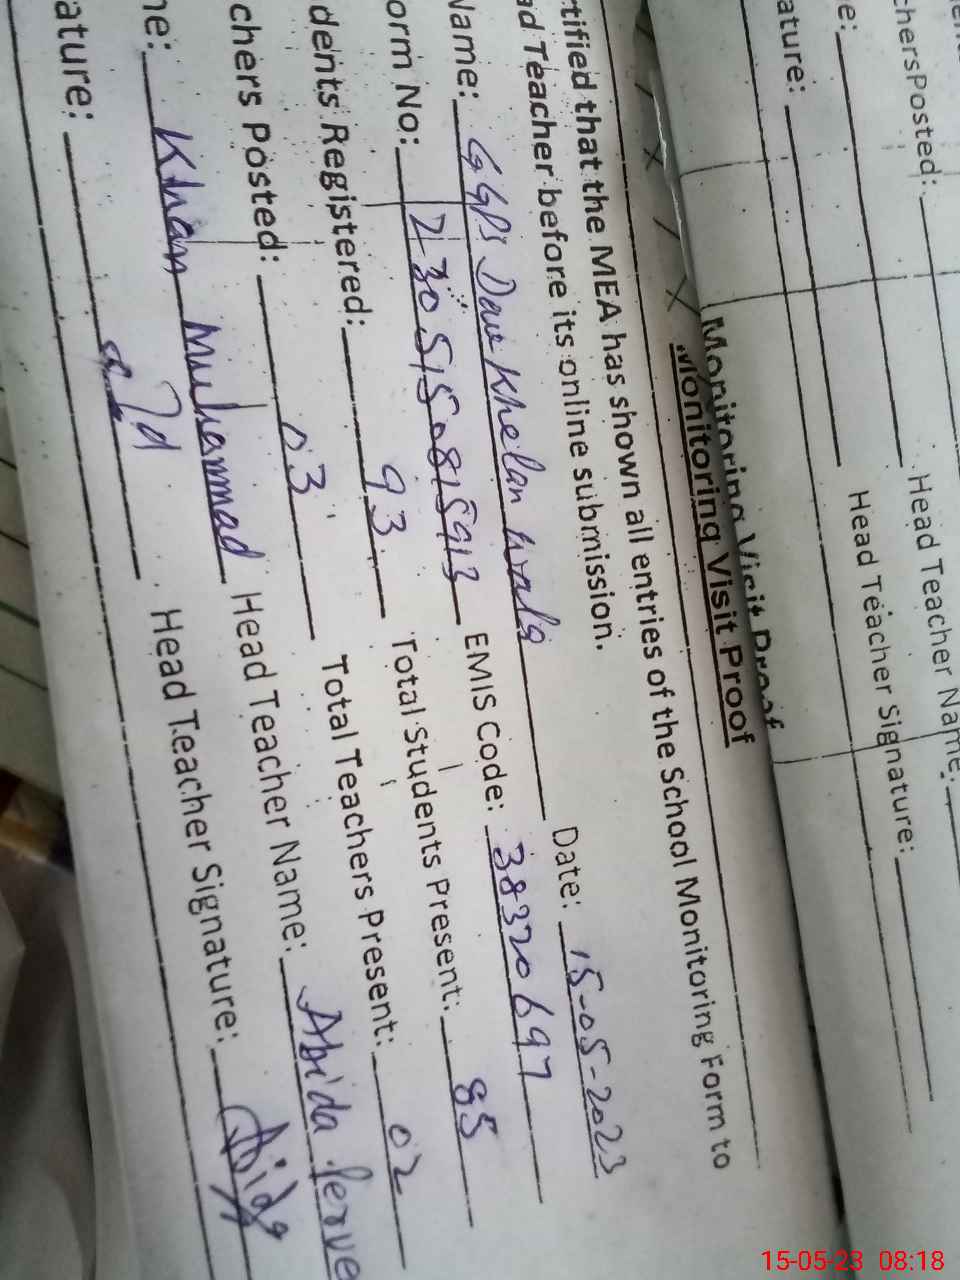 chersPosted:
e: Head Teacher Name:
ature: Head Teacher Signature:
Monitoring Visit Proof
Monitoring Visit Proof
rtified that the MEA has shown all entries of the School Monitoring Form to
ad Teacher before its online submission.
Name: GGPS Dawkhelan wala Date: 15-05-2023
orm No: 230515081593 EMIS Code: 38320697
dents Registered: 93 Total Students Present: 85
chers Posted: 03 Total Teachers Present: 02
ne: Khan Muhammad Head Teacher Name: Abida Perve
ature: Head Teacher Signature: Abida
15-05-23 08:18